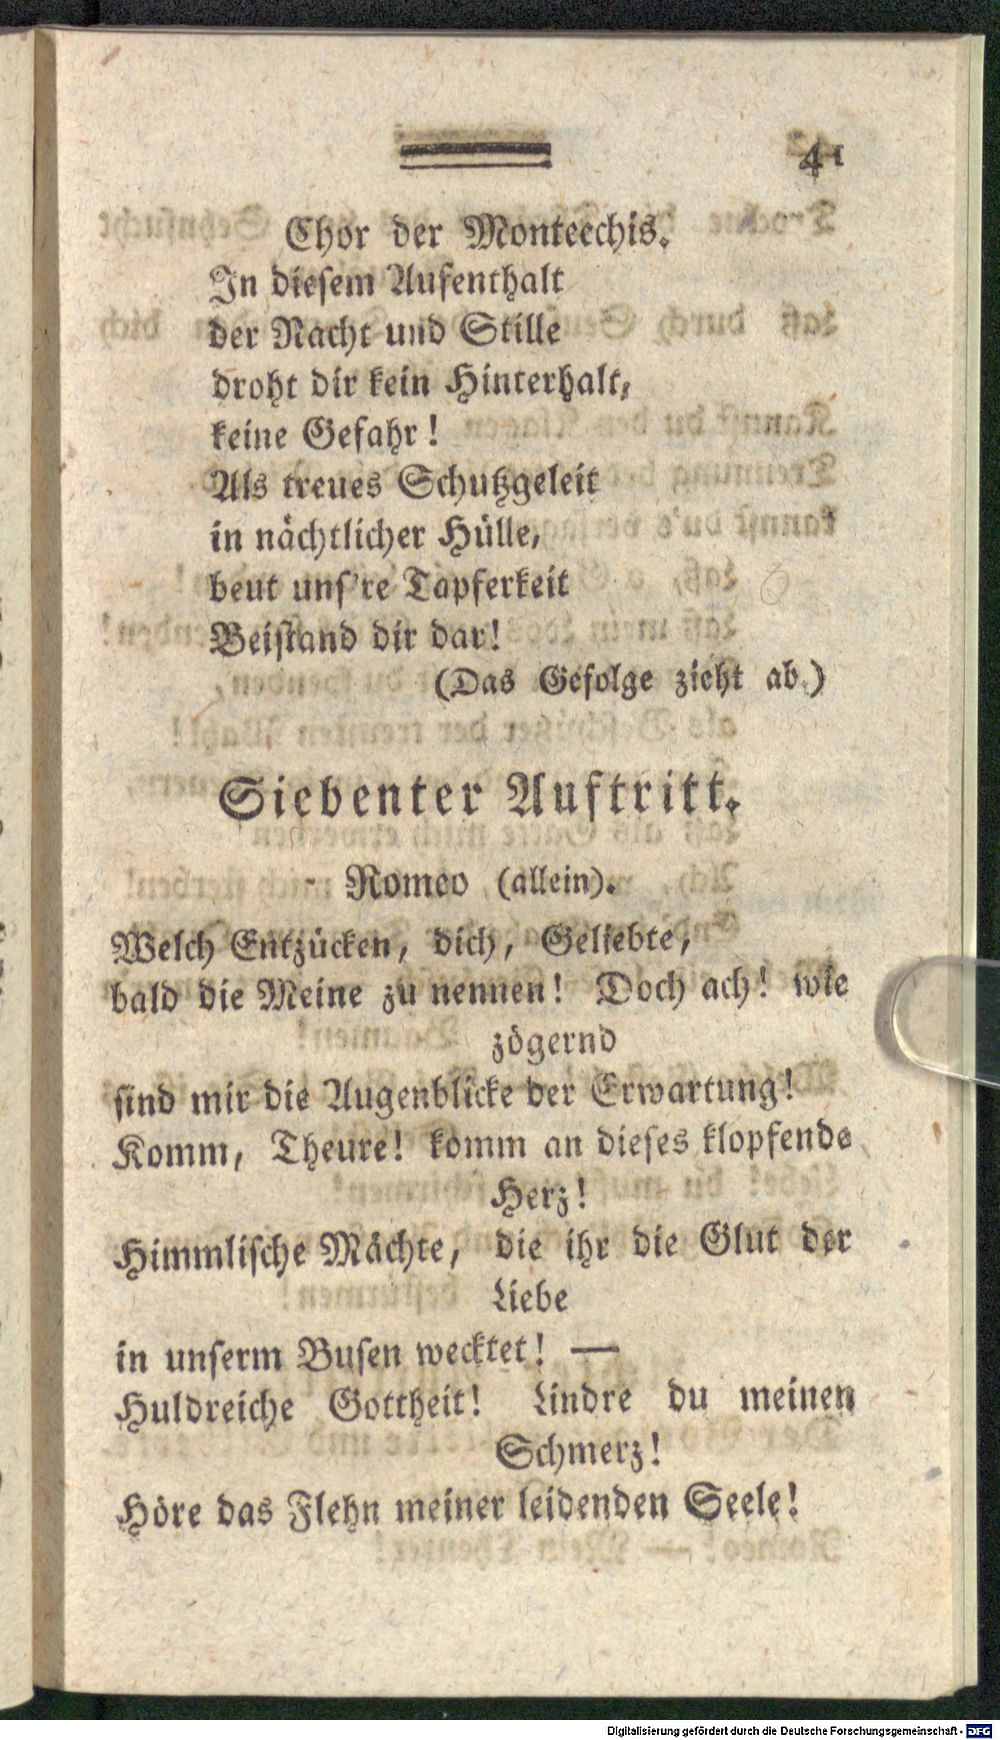 41
Chor der Monteechis.
In diesem Aufenthalt
der Nacht und Stille
droht dir kein Hinterhalt,
keine Gefahr!
Als treues Schutzgeleit
in nächtlicher Hülle,
beut uns're Tapferkeit
Beistand dir dar!
(Das Gefolge zieht ab.)
Siebenter Auftritt.
Romeo (allein).
Welch Entzücken, dich, Geliebte,
bald die Meine zu nennen! Doch ach! wie
zögernd
sind mir die Augenblicke der Erwartung!
Komm, Theure! komm an dieses klopfende
Herz!
Himmlische Mächte, die ihr die Glut der
Liebe
in unserm Busen wecktet! —
Huldreiche Gottheit! Lindre du meinen
Schmerz!
Höre das Flehn meiner leidenden Seele!
Digitalisierung gefördert durch die Deutsche Forschungsgemeinschaft - DFG